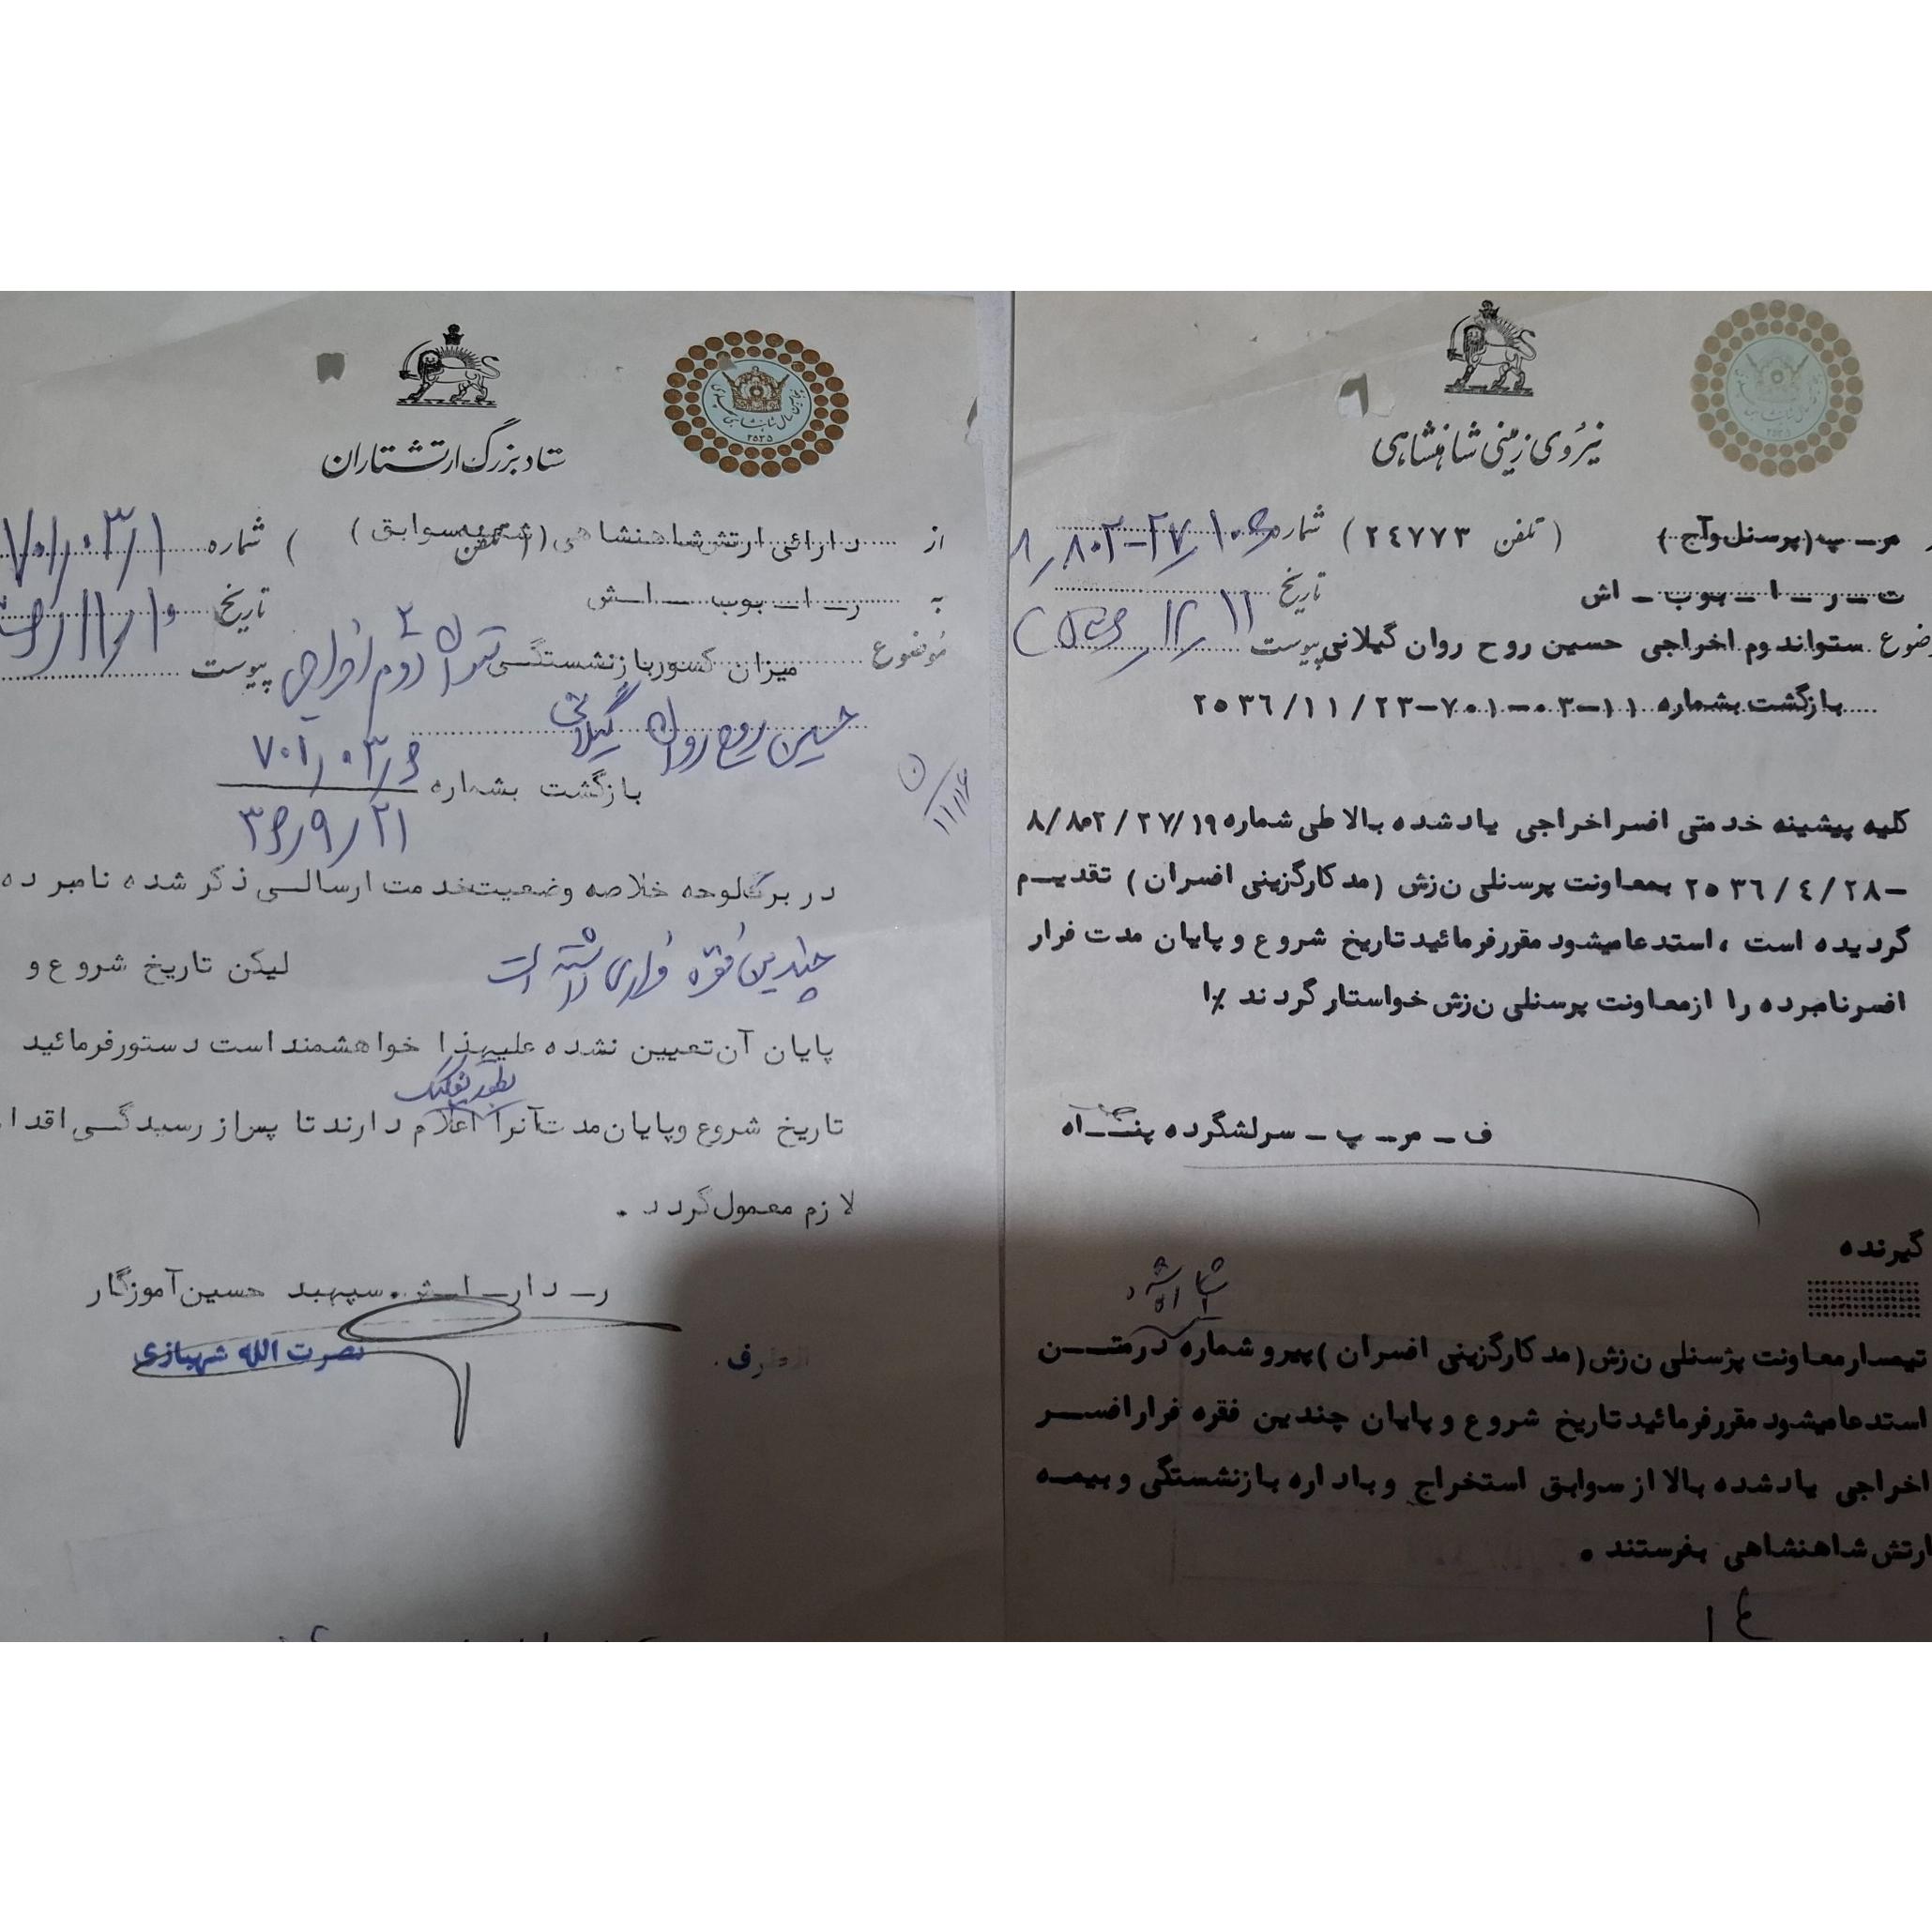 نیروی زمینی شاهنشاهی
مر ـ پ (پرسنل وآج) (تلفن ۲٤۷۷۳) شماره
ت ـ ر ـ ا ـ بوب ـ اش تاریخ
ستواندوم اخراجی حسین روح روان گیلانی پیوست
بازگشت بشماره ۱۱-۰۳-۷۰۱-۲۳/۱۱/۲۵۳٦
کلیه پیشینه خدمتی افسراخراجی یادشده بالا طی شماره ۸/۸۰۲/۲۷/۱۹
-۲۵۳٦/٤/۲۸ بمعاونت پرسنلی نزش (مد کارگزینی افسران) تقدیم
گردیده است ، استدعامیشود مقررفرمائید تاریخ شروع و پایان مدت فرار
افسرنامبرده را ازمعاونت پرسنلی نزش خواستار گردند ٪۱
ف ـ مر ـ پ ـ سرلشگرده پناه
گیرنده
تیمسار معاونت پرسنلی نزش (مد کارگزینی افسران) پیرو شماره درمتن
استدعا میشود مقررفرمائید تاریخ شروع و پایان چندین فقره فرار افسر
اخراجی یادشده بالا از سوابق استخراج و باداره بازنشستگی و بیمه
ارتش شاهنشاهی بفرستند .
۲۵۳۵
ستاد بزرگ ارتشتاران
از دارائی ارتش شاهنشاهی (شعبه سوابق) تلفن ( ) شماره ۷۰۱/۰۳/۱
به ر ـ ا ـ بوب ـ اش تاریخ
موضوع میزان کسور بازنشستگی ستوان ۲ دوم اخراجی پیوست
حسین روح روان گیلانی
بازگشت بشماره ۷۰۱/۰۳/۶
۳۶/۹/۲۱
در برگ لوحه خلاصه وضعیت خدمت ارسالی ذکر شده نامبرده
چندین فقره فراری داشته است لیکن تاریخ شروع و
پایان آن تعیین نشده علیهذا خواهشمند است دستور فرمائید
بطور تفکیک
تاریخ شروع و پایان مدت آنرا اعلام دارند تا پس از رسیدگی اقدا
لازم معمول گردد .
ر ـ دار ـ اش . سپهبد حسین آموزگار
ازطرف . نصرت الله شهبازی